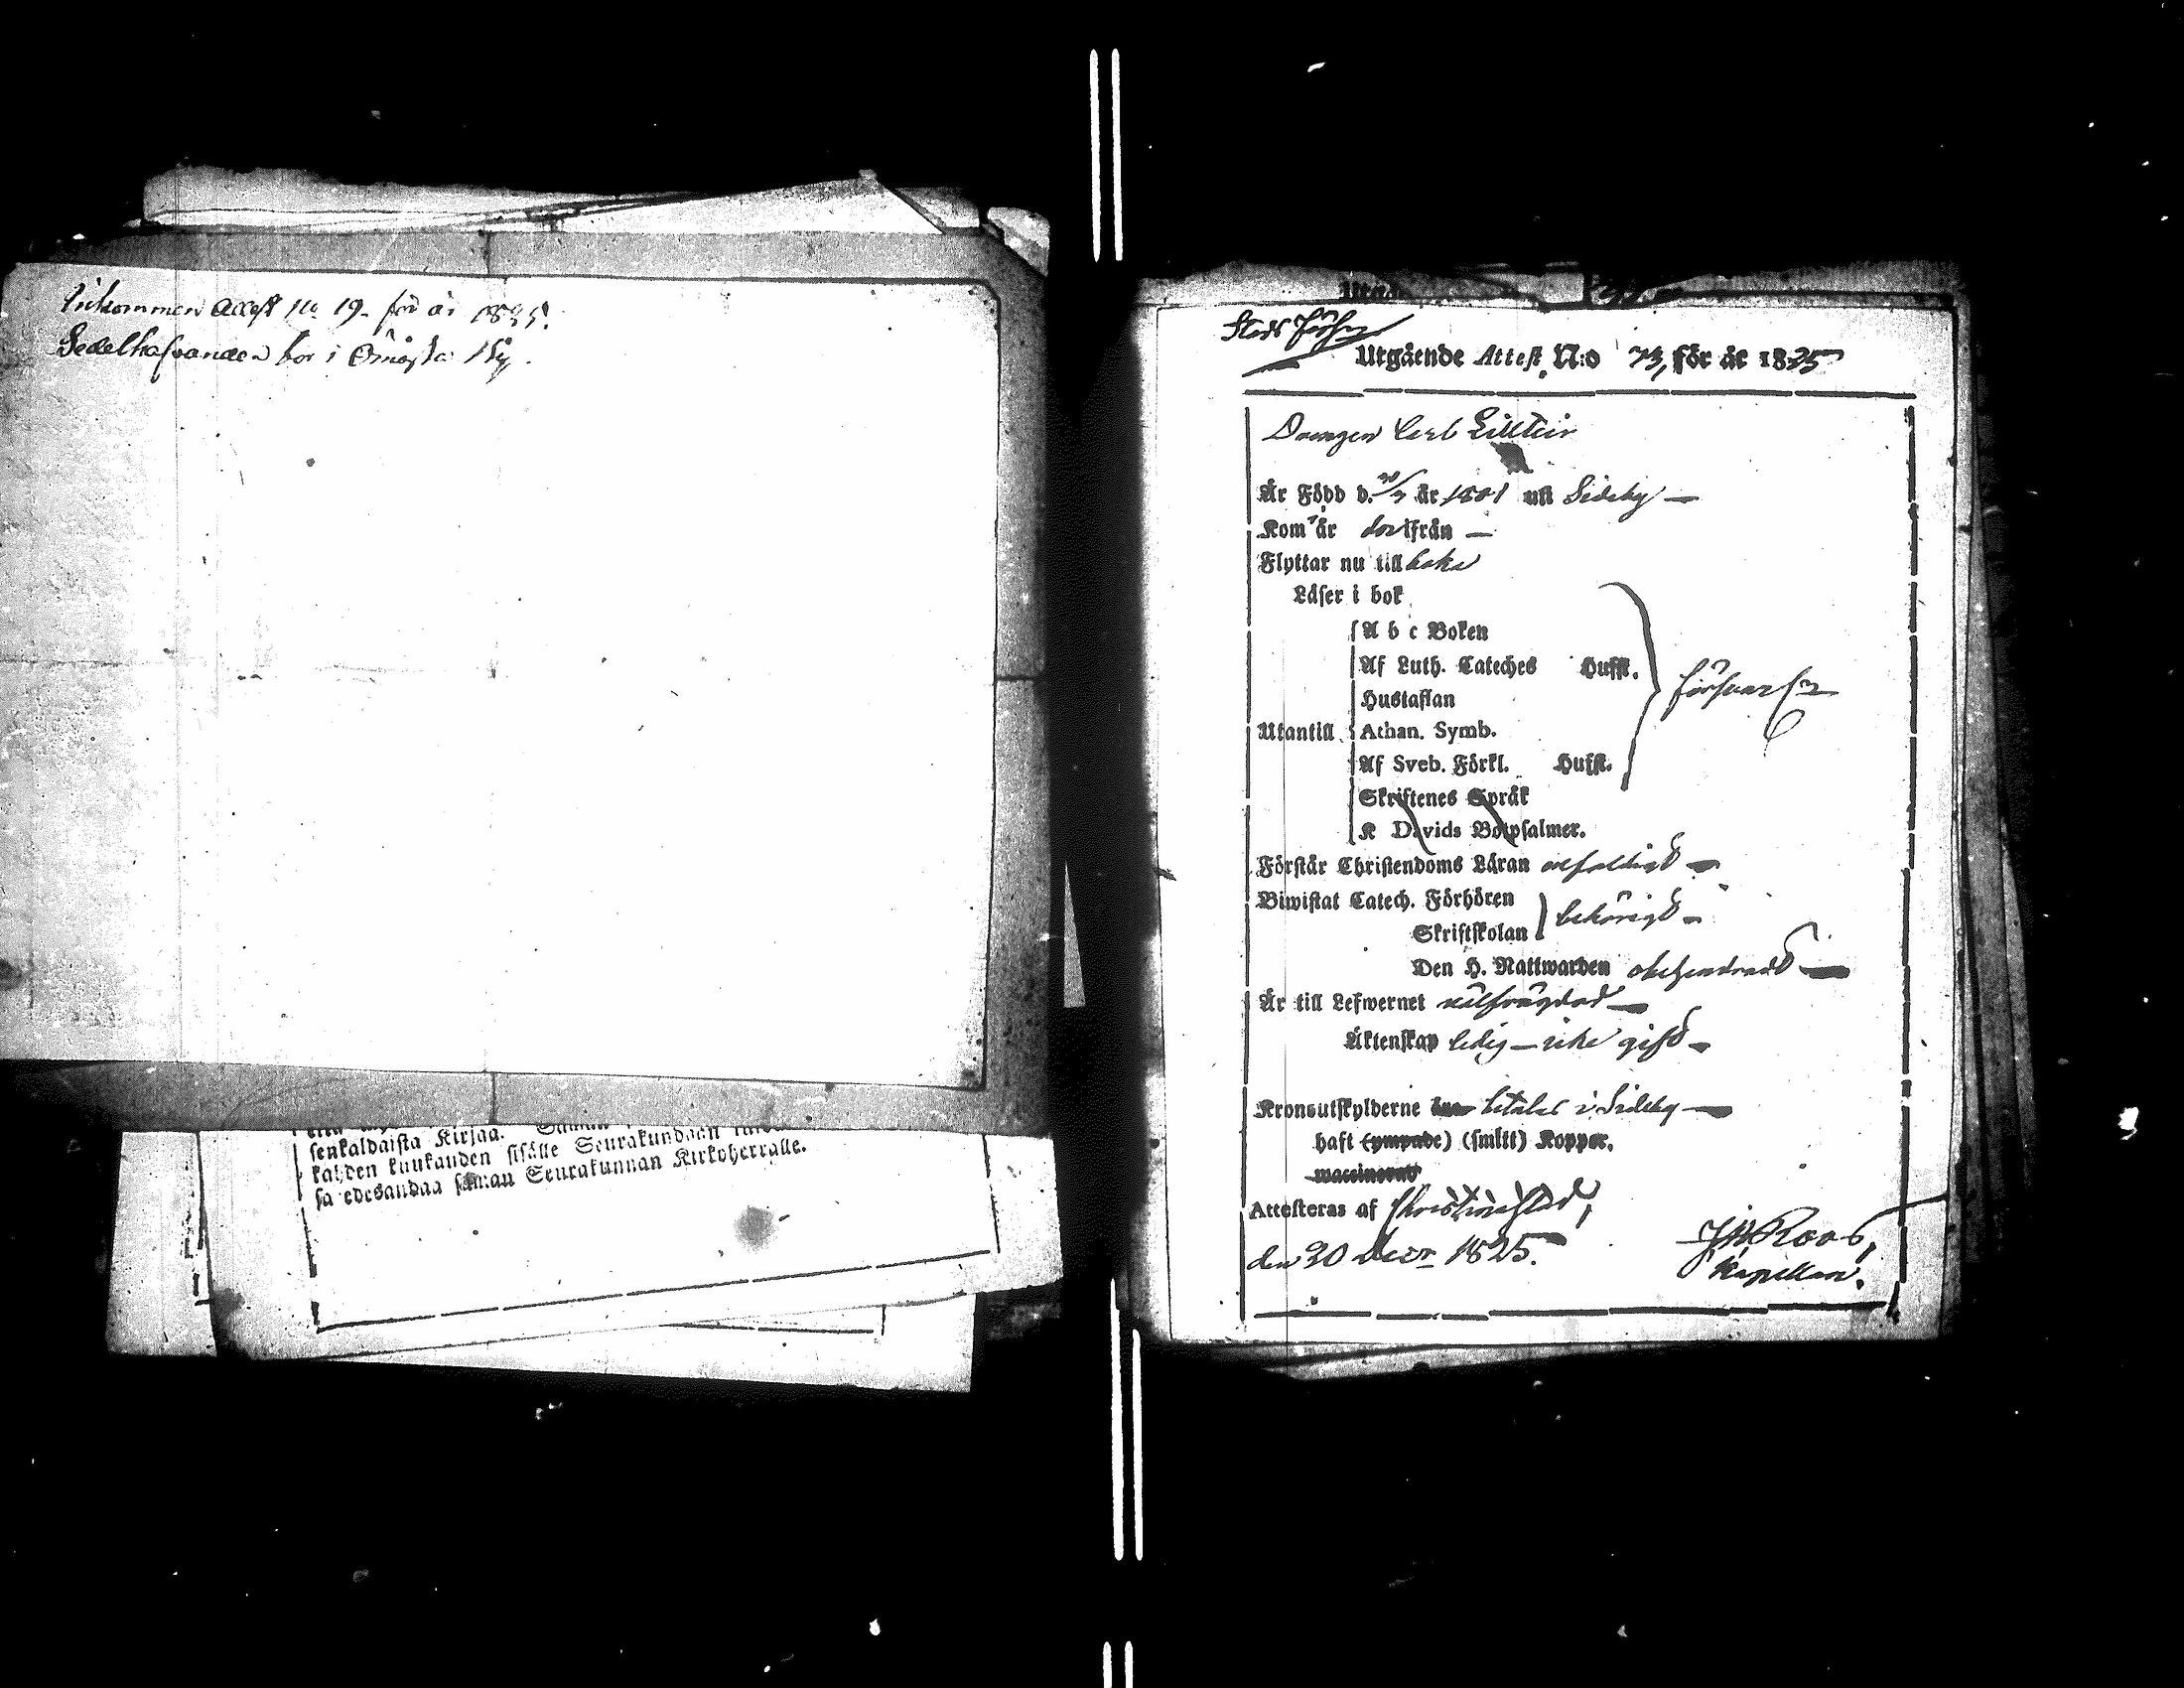 Inkommen Attest No 19. för år 1825.
Sedelhafvanden bor i By.
senkaldaista Kirjaa.
kahden kuukauden sisälle Seurakundaan
sa edesandaa saman Seurakunnan Kirkoherralle.
Utgående Attest N:o 73, för år 1825
Drengen Carl Lillteir
Är Född d. år 1801 uti Sideby —
Kom år dorifrån —
Flyttar nu tillbaka
Läser i bok
A b c Boken
Af Luth. Cateches Hufst.
Hustaflan
Utantill Athan. Symb.
Af Sveb. Förkl. Hufst.
försvarl.
Skriftenes Språk
K Davids Botpsalmer.
Förstår Christendoms Läran
Biwistat Catech. Förhören
Skriftskolan behörigt —
Den H. Nattwarden obehindradt —
Är till Lefwernet välfrägdad —
Äktenskap ledig — icke gift —
Kronoutskylderne betalas i Sideby —
haft (ympade) (smitt) Koppor.
waccinerad
Attesteras af Christinestad,
den 30 Decr 1825.
Roos,
Kapellan.